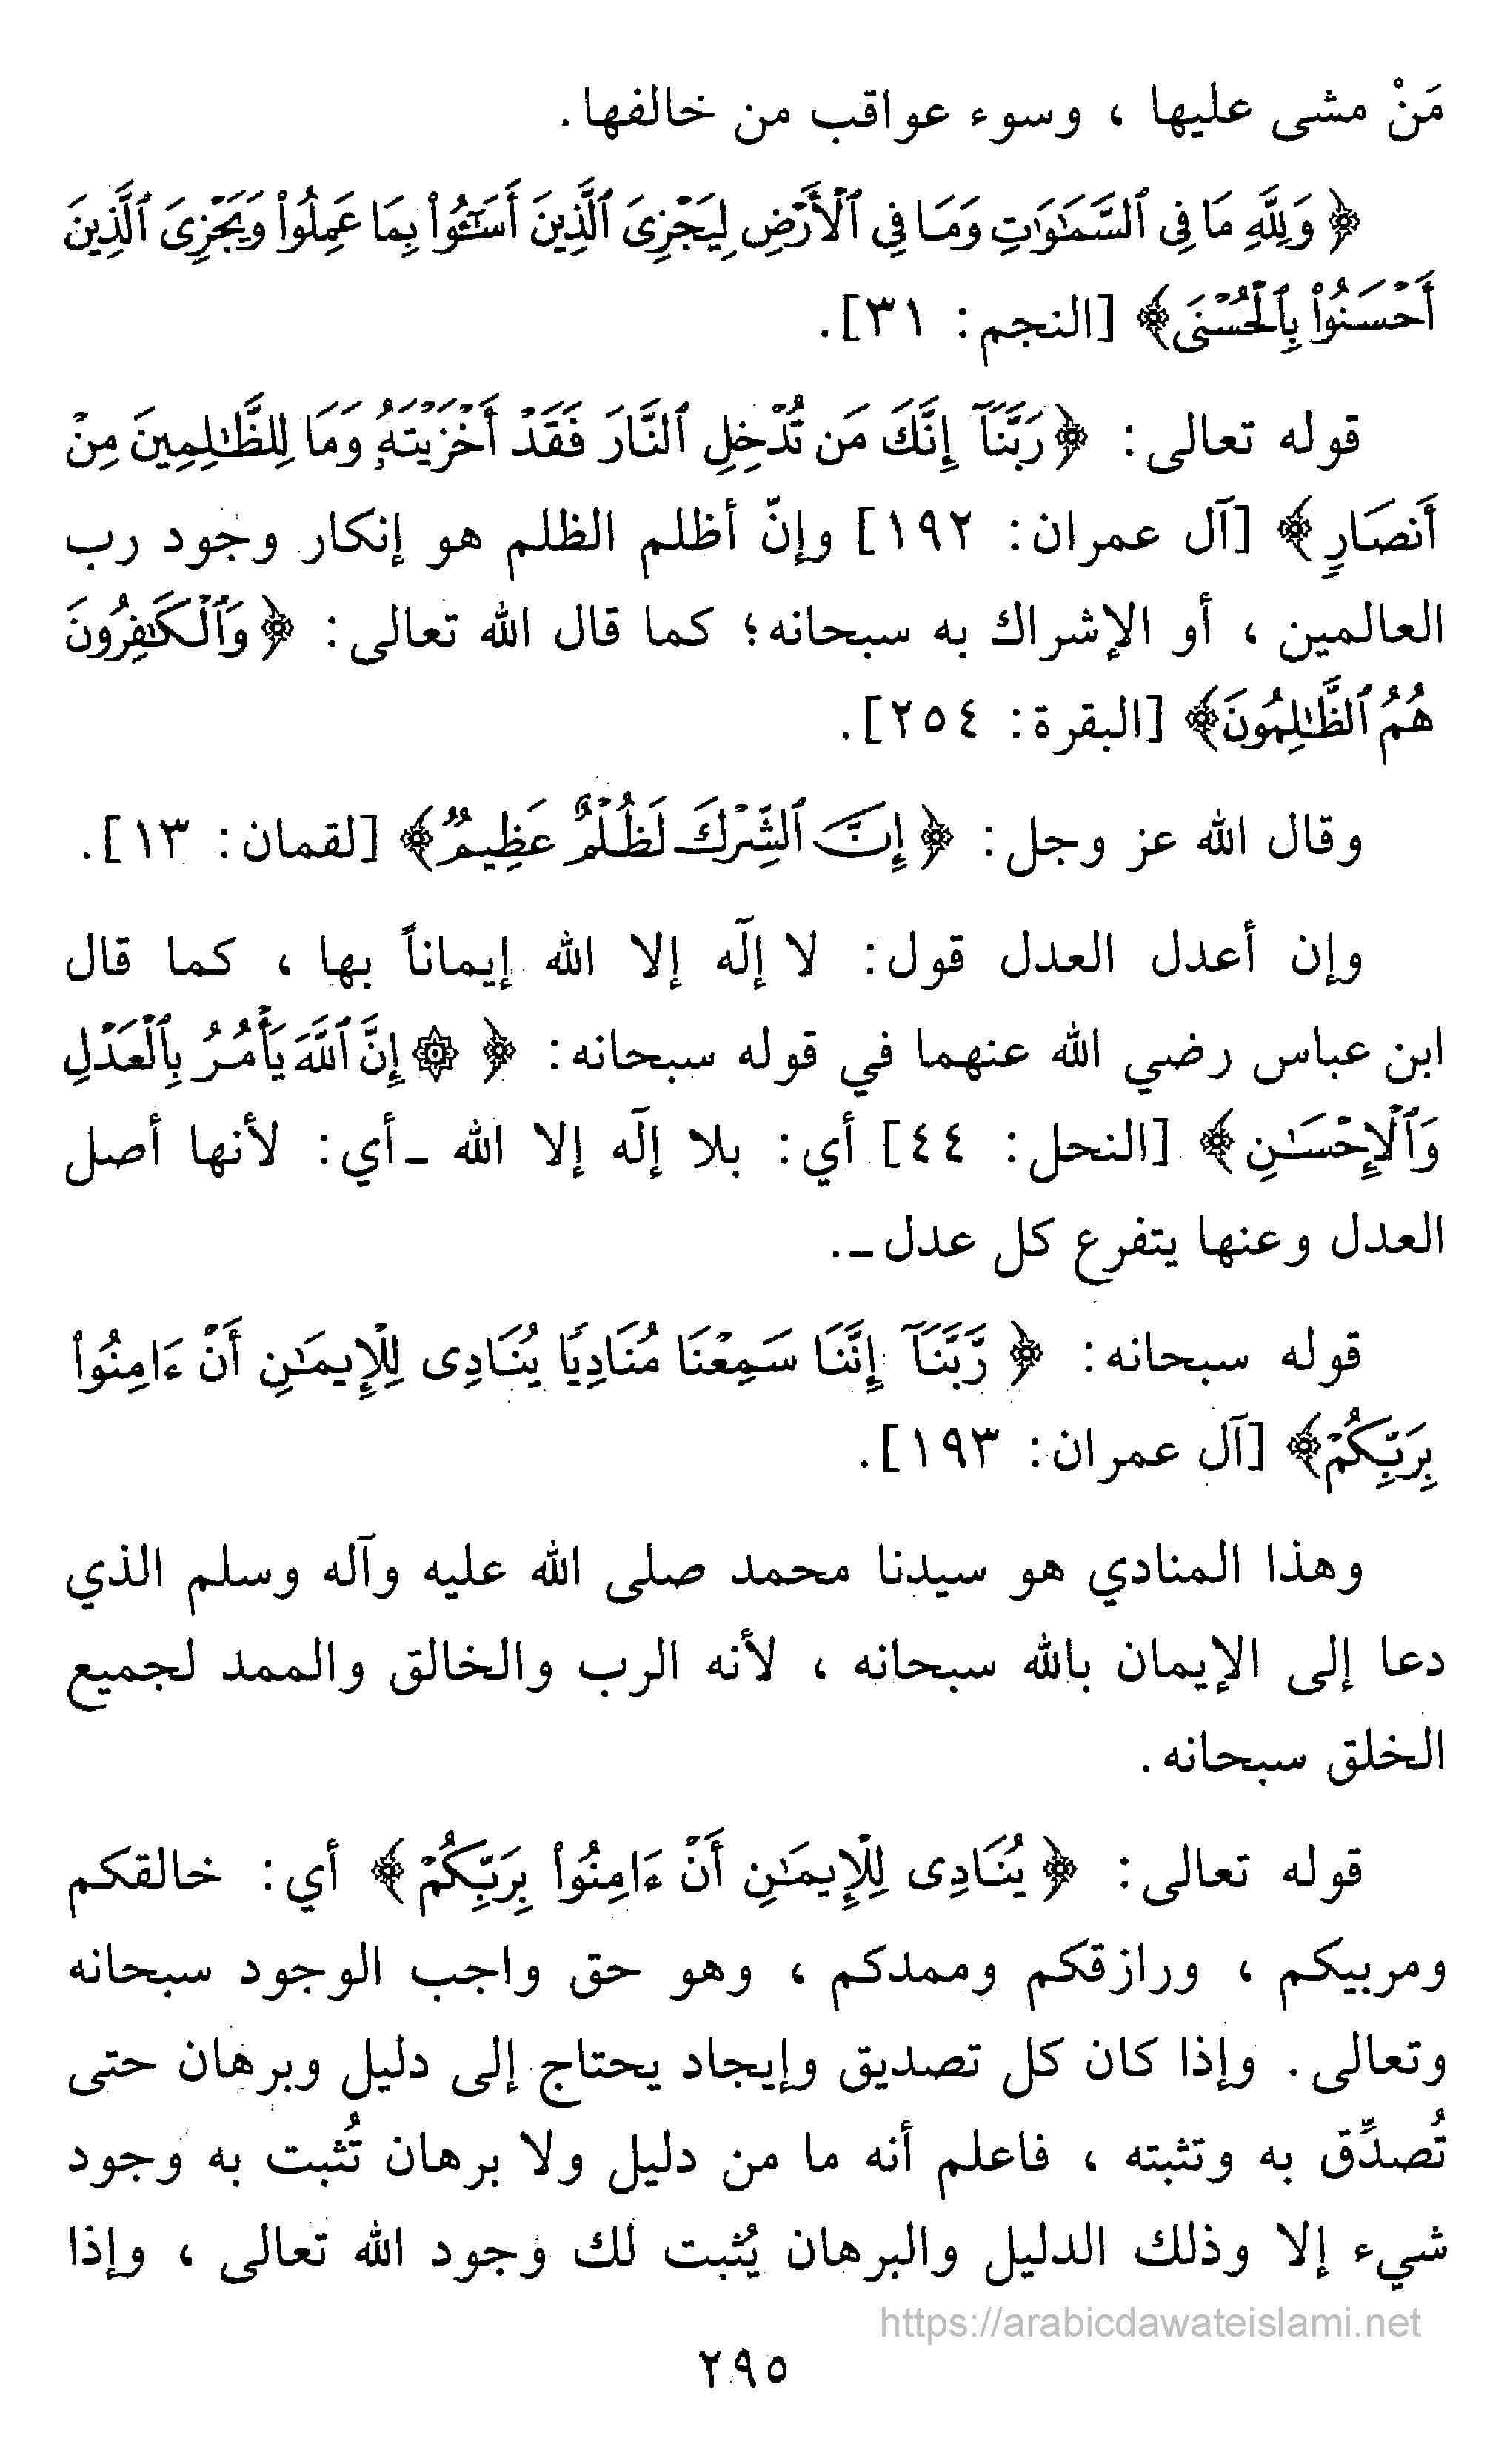 مَنْ مشى عليها ، وسوء عواقب من خالفها.
﴿ وَلِلَّهِ مَا فِى ٱلسَّمَٰوَٰتِ وَمَا فِى ٱلْأَرْضِ لِيَجْزِىَ ٱلَّذِينَ أَسَٰٓـُٔوا۟ بِمَا عَمِلُوا۟ وَيَجْزِىَ ٱلَّذِينَ
أَحْسَنُوا۟ بِٱلْحُسْنَى﴾ [النجم: ٣١].
قوله تعالى: ﴿رَبَّنَآ إِنَّكَ مَن تُدْخِلِ ٱلنَّارَ فَقَدْ أَخْزَيْتَهُۥ وَمَا لِلظَّٰلِمِينَ مِنْ
أَنصَارٍ ﴾ [آل عمران: ١٩٢] وإنّ أظلم الظلم هو إنكار وجود رب
العالمين ، أو الإشراك به سبحانه؛ كما قال الله تعالى: ﴿ وَٱلْكَٰفِرُونَ
هُمُ ٱلظَّٰلِمُونَ﴾ [البقرة: ٢٥٤].
وقال الله عز وجل: ﴿ إِنَّ ٱلشِّرْكَ لَظُلْمٌ عَظِيمٌ﴾ [لقمان: ١٣].
وإن أعدل العدل قول: لا إلٓه إلا الله إيماناً بها ، كما قال
ابن عباس رضي الله عنهما في قوله سبحانه: ﴿ ۞ إِنَّ ٱللَّهَ يَأْمُرُ بِٱلْعَدْلِ
وَٱلْإِحْسَٰنِ ﴾ [النحل: ٤٤] أي: بلا إلٓه إلا الله ـ أي: لأنها أصل
العدل وعنها يتفرع كل عدل ـ.
قوله سبحانه: ﴿ رَّبَّنَآ إِنَّنَا سَمِعْنَا مُنَادِيًا يُنَادِى لِلْإِيمَٰنِ أَنْ ءَامِنُوا۟
بِرَبِّكُمْ﴾ [آل عمران: ١٩٣].
وهذا المنادي هو سيدنا محمد صلى الله عليه وآله وسلم الذي
دعا إلى الإيمان بالله سبحانه ، لأنه الرب والخالق والممد لجميع
الخلق سبحانه.
قوله تعالى: ﴿ يُنَادِى لِلْإِيمَٰنِ أَنْ ءَامِنُوا۟ بِرَبِّكُمْ ﴾ أي: خالقكم
ومربيكم ، ورازقكم وممدكم ، وهو حق واجب الوجود سبحانه
وتعالى. وإذا كان كل تصديق وإيجاد يحتاج إلى دليل وبرهان حتى
تُصدِّق به وتثبته ، فاعلم أنه ما من دليل ولا برهان تُثبت به وجود
شيء إلا وذلك الدليل والبرهان يُثبت لك وجود الله تعالى ، وإذا
https://arabicdawateislami.net
٢٩٥